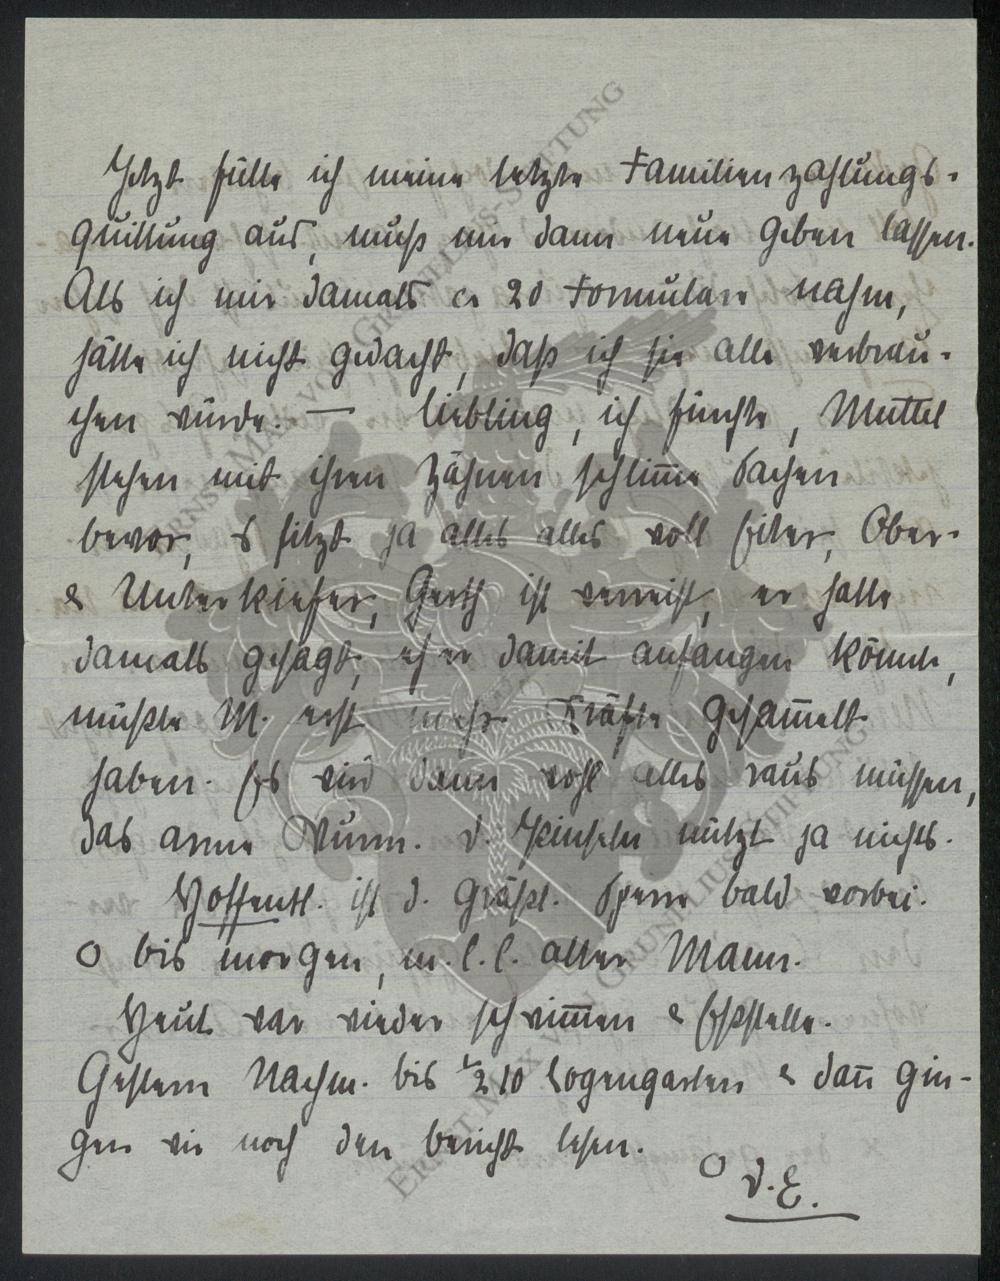 Jetzt fülle ich meine letzte Familienzahlungs-
quittung aus, muß mir dann neue geben lassen.
Als ich mir damals ca 20 Formulare nahm,
hätte ich nicht gedacht, daß ich sie alle verbrau-
chen würde. — Liebling, ich fürchte, Muttel
stehen mit ihren Zähnen schlim̅e Sachen
bevor, es sitzt ja alles alles voll Eiter, Ober-
& Unterkiefer, Gerth ist verreist, er hatte
damals gesagt, eh er damit anfangen könnte,
müßte M. erst mehr Kräfte gesam̅elt
haben. Es wird dann wohl alles raus müssen,
das arme Wurm. D. Pinseln nützt ja nichts.
Hoffentl. ist d. gräßl. Sperre bald vorbei.
O bis morgen, m. l. l. alter Mann.
Heut war wieder schwim̅en & Eßstelle.
Gestern Nachm. bis ½ 10 Logengarten & dan̅ gin-
gen wir noch den Bericht lesen.
O D. E.
ERNST MAX VON GRUNELIUS-STIFTUNG
ERNST MAX VON GRUNELIUS-STIFTUNG